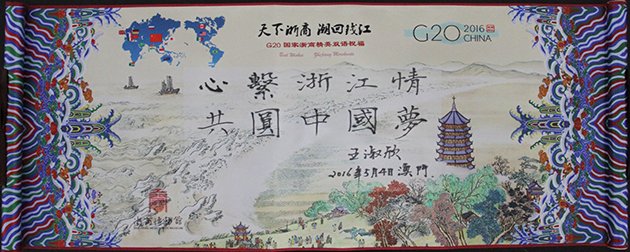 天下浙商 潮回钱江
G20 国家浙商精英双语祝福
Best Wishes Zhejiang Merchants
G20 2016 CHINA
心繫浙江情
共圓中國夢
王淑欣
2016年5月4日 澳門